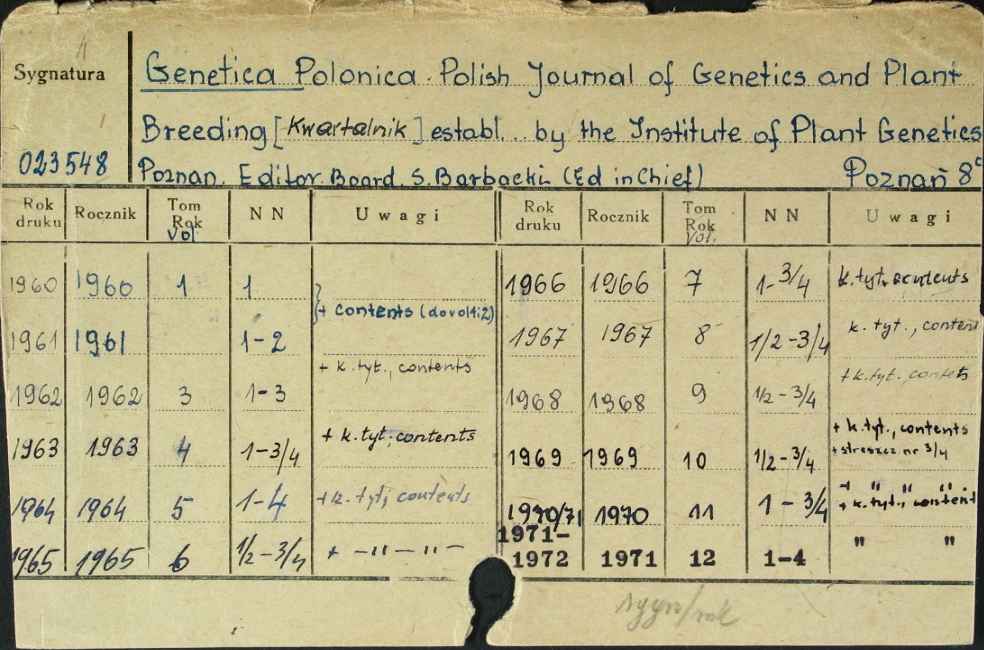 Sygnatura
Genetica Polonica. Polish Journal of Genetics and Plant
Breeding [Kwartalnik] establ... by the Institute of Plant Genetics
023548 Poznan. Editor.Board. S. Barbacki (Ed in Chief) Poznań 8°
Rok druku Rocznik Tom Rok Vol. NN Uwagi Rok druku Rocznik Tom Rok Vol. NN Uwagi
1960 1960 1 1 1966 1966 7 1-3/4 k. tyt.
+ contents (do vol 1i2)
1961 1961 1-2 1967 1967 8 1/2-3/4 k. tyt., content
1962 1962 3 1-3 + k. tyt., contents 1968 1968 9 1/2-3/4 + k. tyt.
1963 1963 4 1-3/4 + k. tyt., contents 1969 1969 10 1/2-3/4 + k. tyt., contents
+ streszcz. nr 3/4
1964 1964 5 1-4 + k. tyt, contents 1970/71 1970 11 1-3/4 + " " "
+ k. tyt., content
1965 1965 6 1/2-3/4 + -"- "- 1971-1972 1971 12 1-4 " "
sygn/rok